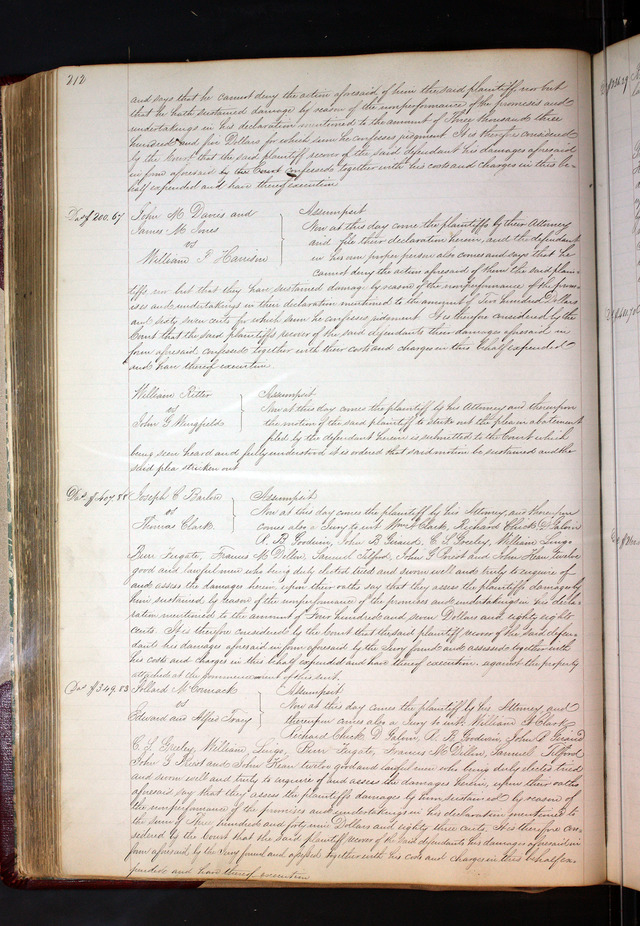 212
and says that he cannot deny the action aforesaid of him the said plaintiff nor but
that he hath sustained damage by reason of the nonperformance of the promises and
undertakings in his declaration mentioned to the amount of Three thousand three
hundred and six Dollars for which sum he confesses judgment It is therefore considered
by the Court that the said plaintiff recover of the said defendant his damages aforesaid
in form aforesaid by the Court confessed together with his costs and charges in this be-
half expended and have thereof execution
Das $200.67 John M Davies and Assumpsit
James M Jones Now at this day come the plaintiffs by their Attorney
vs and file their declaration herein, and the defendant
William P Harrison in his own proper person also comes and says that he
cannot deny the action aforesaid of them the said plain-
tiffs, nor but that they have sustained damage by reason of the nonperformance of the prom-
ises and undertakings in their declaration mentioned to the amount of Hundred Dollars
and sixty seven cents for which sum he confesses judgment. It is therefore considered by the
Court that the said plaintiffs recover of the said defendants their damages aforesaid in
form aforesaid confessed together with their costs and charges in this behalf expended
and have thereof execution.
William Ritter Assumpsit.
vs Now at this day comes the plaintiff by his Attorney and thereupon
John G Wingfield the motion of the said plaintiff to strike out the plea in abatement
filed by the defendant herein is submitted to the Court which
being seen heard and fully understood it is ordered that said motion be sustained and the
said plea stricken out
Das $407.88 Joseph C Barlow Assumpsit
vs Now at this day comes the plaintiff by his Attorney, and thereupon
Thomas Clark comes also a Jury to wit Wm Clark, Richard Cheek D Galvin
R. B Goodwin, John R Girard, C. S Greeley, William Lingo
Burr Fugate, Francis M Dillon, Samuel Tilford, John G Priest and John Kean twelve
good and lawful men who being duly elected tried and sworn well and truly to enquire of
and assess the damages herein, upon their oaths say that they assess the plaintiffs damage by
him sustained by reason of the nonperformance of the promises and undertakings in his decla-
ration mentioned to the amount of Four hundred and seven Dollars and eighty eight
cents. It is therefore considered by the Court that the said plaintiff recover of the said defen-
dant his damages aforesaid in form aforesaid by the Jury found and assessed together with
his costs and charges in this behalf expended and have thereof execution, against the property
attached at the commencement of this suit.
Das $349.83 Pollard McCormack Assumpsit
vs Now at this day comes the plaintiff by his Attorney, and
Edward and Alfred Tracy thereupon comes also a Jury to wit, William Clark
Richard Cheek D Galvin, R. B Goodwin, John R Girard
C. S. Greeley, William Lingo, Burr Fugate, Francis M Dillon, Samuel Tilford
John G Priest and John Kean twelve good and lawful men who being duly elected tried
and sworn well and truly to enquire of and assess the damages herein, upon their oaths
aforesaid say that they assess the plaintiffs damages by him sustained by reason of
the nonperformance of the promises and undertakings in his declaration mentioned to
the sum of Three hundred and forty nine Dollars and eighty three cents. It is therefore con-
sidered by the Court that the said plaintiff recover of the said defendants his damages aforesaid in
form aforesaid, by the Jury found and assessed together with his costs and charges in this behalf ex-
pended and have thereof execution